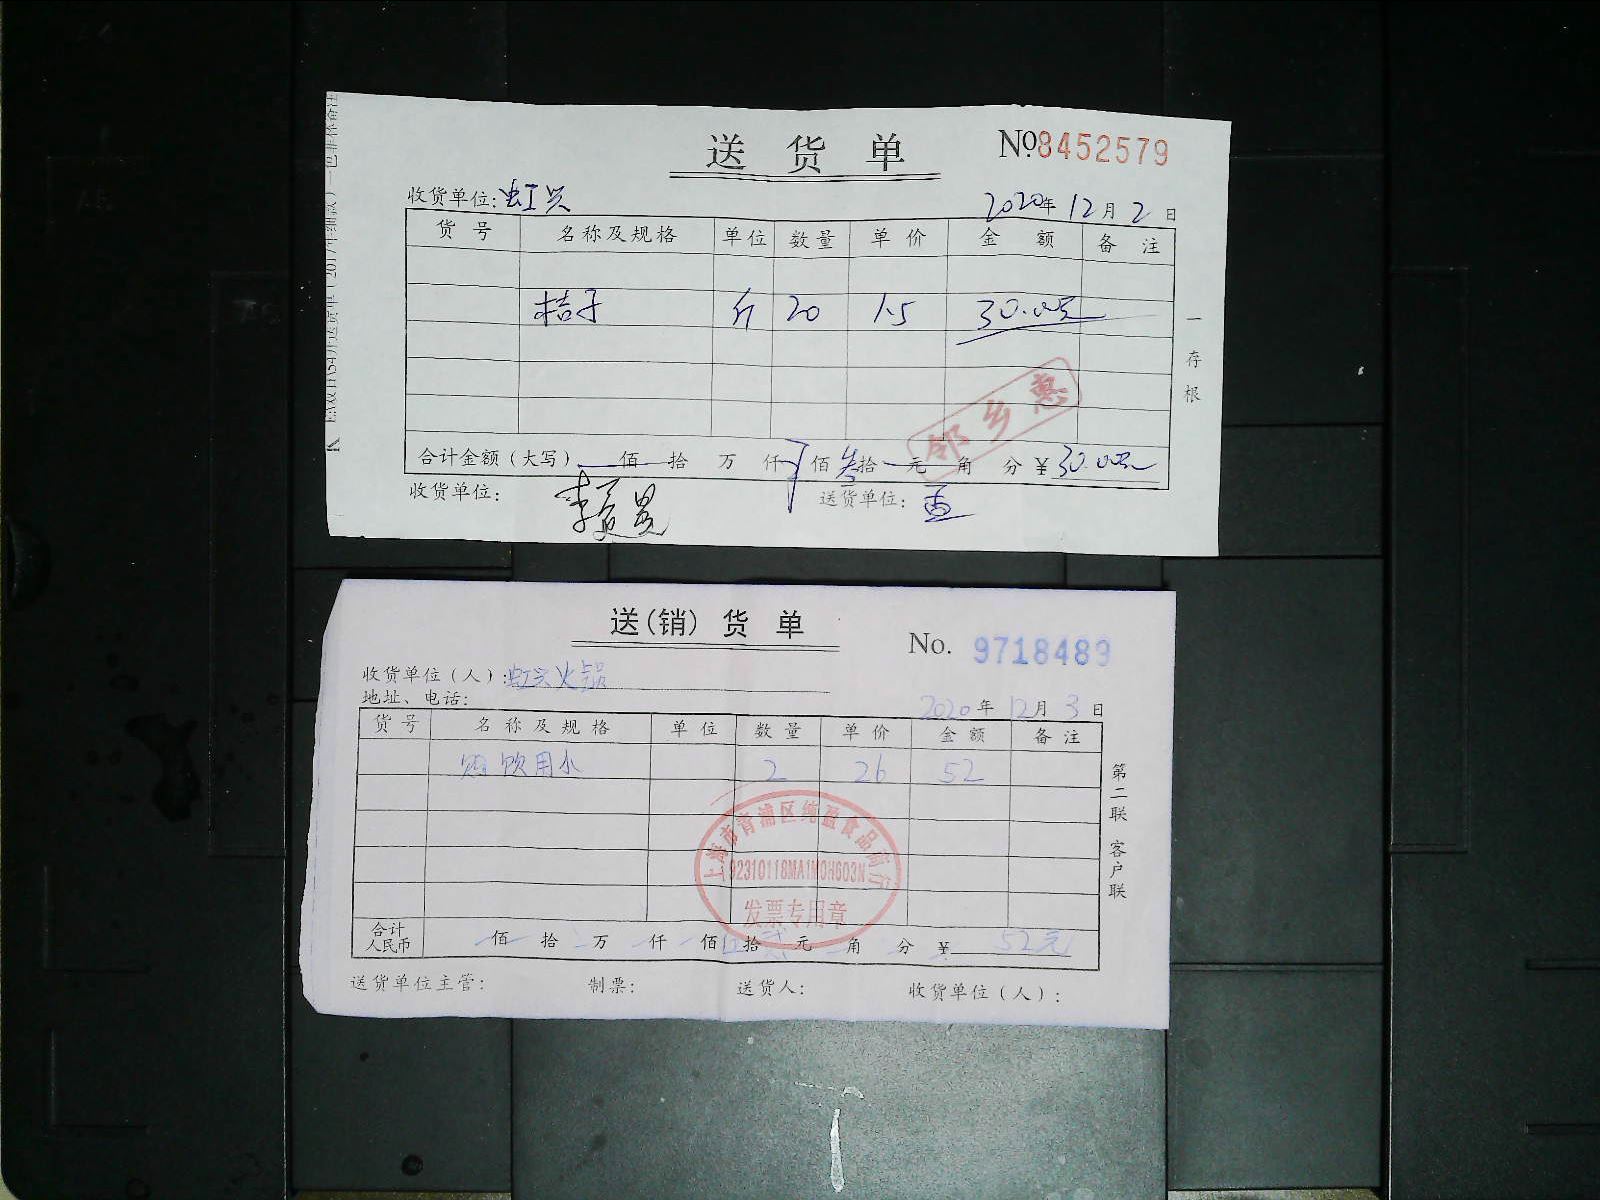 送 货 单 №8452579
收货单位: 虹兴 2020年 12月 2日
货 号 名称及规格 单位 数量 单 价 金 额 备 注
桔子 斤 20 1.5 30.00元
邻乡惠
一 存 根
合计金额(大写) 佰 拾 万 仟 佰 叁拾 元 角 分 ¥30.00元
收货单位: 送货单位:
送(销) 货 单 No. 9718489
收货单位(人): 虹兴火锅
地址、电话: 2020年 12月 3日
货 号 名 称 及 规 格 单 位 数 量 单 价 金 额 备 注
饮用水 2 26 52
第二联 客户联
上海市青浦区纯盈食品商行
92310118MA1M0H603N
发票专用章
合计人民币 佰 拾 万 仟 佰 伍拾 贰元 角 分 ¥ 52元
送货单位主管: 制票: 送货人: 收货单位(人):